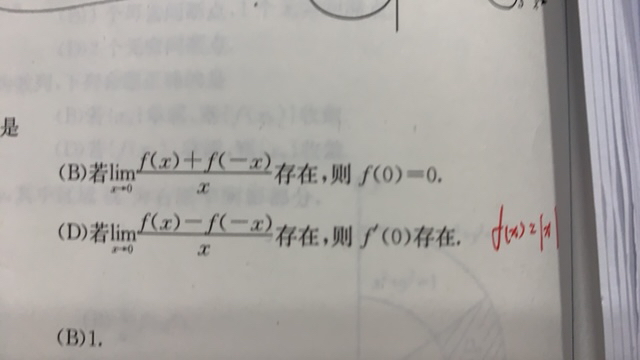 是
(B)若lim x→0 f(x)+f(-x)/x 存在,则 f(0)=0.
(D)若lim x→0 f(x)-f(-x)/x 存在,则 f′(0)存在. f(x)=|x|
(B)1.